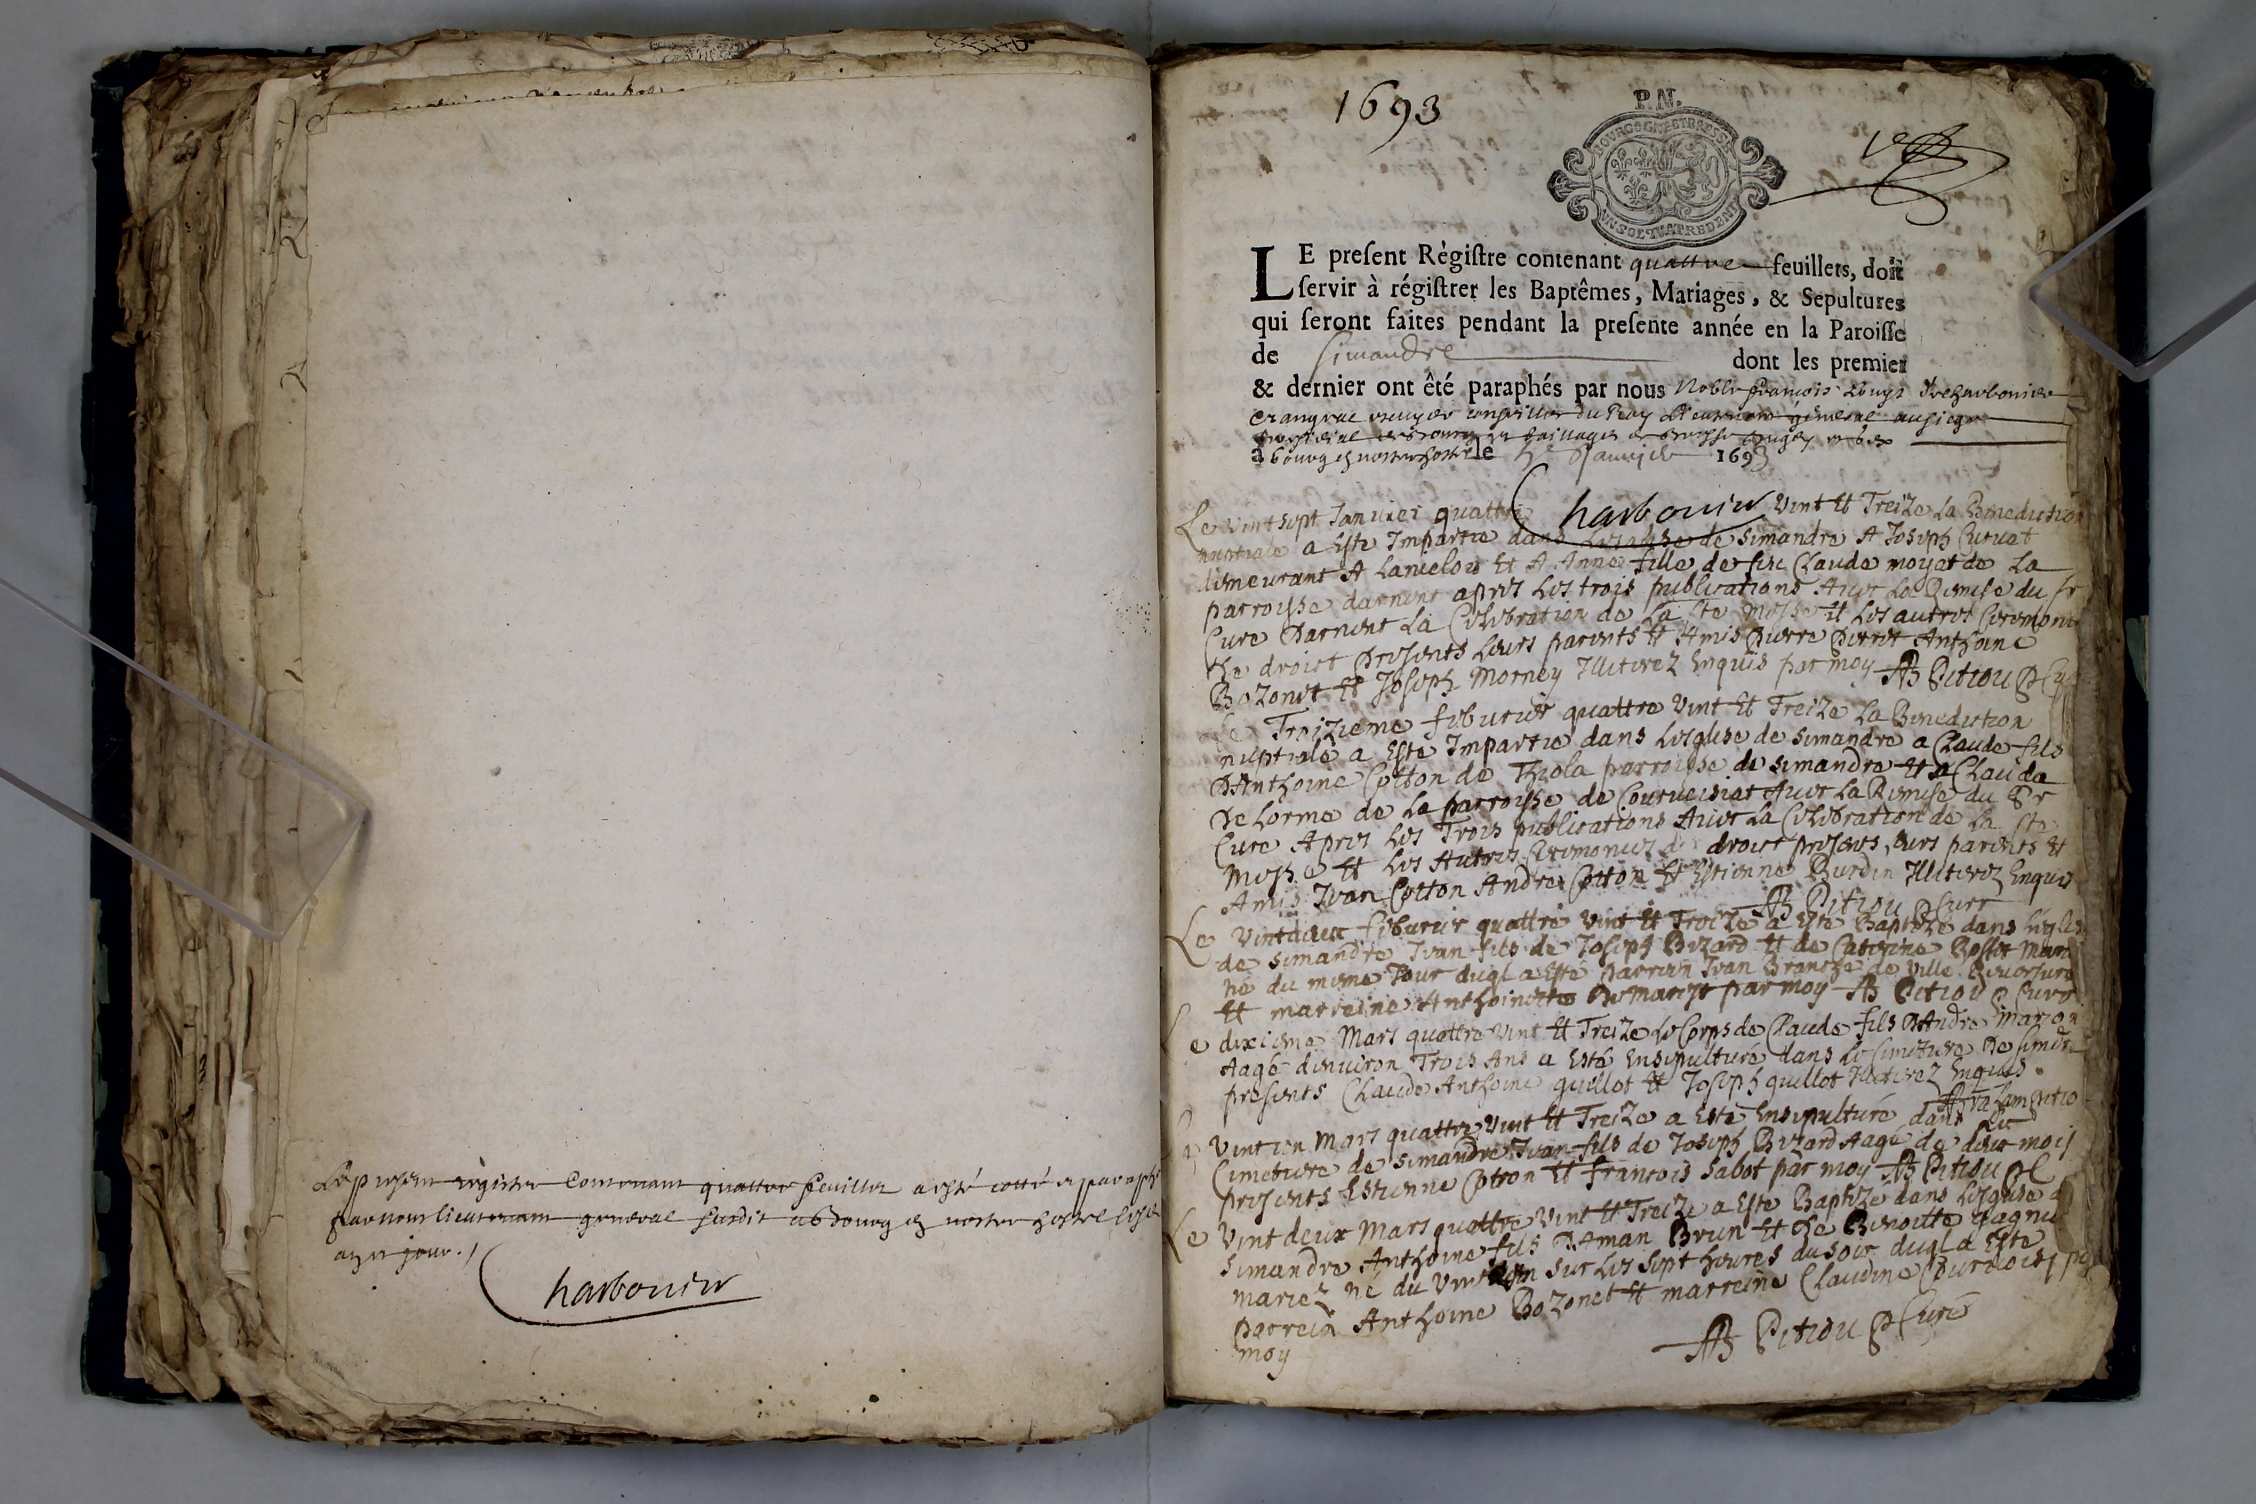 Le present registre Contenant quattre feuillets a esté cotté et paraphé
par nous lieutenant general susdit a Bourg en nostre hostel lesd
an et jour
Charbonier
1693
P.N.
BOURGOGNE ET BRESSE
LE present Règistre contenant quattre feuillets, doit
servir à régistrer les Baptêmes, Mariages, & Sepultures
qui seront faites pendant la presente année en la Paroisse
de Simandre dont les premier
& dernier ont êté paraphés par nous Noble François Louys De Charbonier
Crangeac escuyer conseiller du Roy Lieutenant general au siege
presidial de Bourg et bailliages de Bresse
à Bourg en nostre hostel le Janvier 1693
Charbonier
Le vint sept Janvier quattre vint Et Treize La Benediction
nuptiale a Este Impartie dans Lesglise de Simandre A Joseph Curvat
demeurant A Et A Anne fille de feu Claude moyat de La
parroisse darnent apres Les trois publications Avec La Remise du Sr
Cure Darnent La Celebration de La Ste Messe Et Les autres Ceremonies
De droict Presents Leurs parents Et Amis Pierre Perret Anthoine
Bozonet Et Joseph Morney Illiterez Enquis par moy AB Pitiou P Cu
Le Troizieme feburier quattre vint Et Treize La Benediction
nuptiale a Este Impartie dans Lesglise de Simandre a Claude fils
D'Anthoine Cotton de Thiola parroisse de Simandre Et a Clauda
De Lorme de La parroisse de Courveissiat Avec La Remise du Sr
Cure Apres Les Trois publications Avec La Celebration de La Ste
Messe Et Les Autres Ceremonies de droict presents Leurs parents Et
Amis Jvan Cotton Andre Cotton Et Estienne Burdin Illiterez Enquis
AB Pitiou P Cure
Le Vint feburier quattre vint Et Treize a Este Baptize dans Leglise
de Simandre Jvan fils de Joseph Bizard Et de Caterine Rosset Mariez
né du mesme Jour duql a Esté parrain Jvan Branche de ville Reversure
Et marreine Anthoinette par moy AB Pitiou P Cure
Le dixieme Mars quattre vint Et Treize Le Corps de Claude fils D'André Marion
Aagé denviron Trois Ans a Esté Ensepulturé dans Le Cimetiere De Simdre
presents Claude Anthoine guillot Et Joseph guillot Illiterez Enquis
Le vint ien Mars quattre vint Et Treize a Esté Ensepulturé dans Le
Cimetiere de Simandre Jvan fils de Joseph Bizard Aagé de deux mois
presents Estienne Cotton Et François Sabot par moy AB Pitiou P C
Le Vint deux Mars quattre vint Et Treize a Este Baptize dans Lesglise de
Simandre Anthoine fils D'Aman Brun Et De Benoitte Gagneu
mariez né du vint sur Les sept heures du soir duql a Este
parrein Anthoine Bozonet Et marreine Claudine par
moy
AB Pitiou P Curé